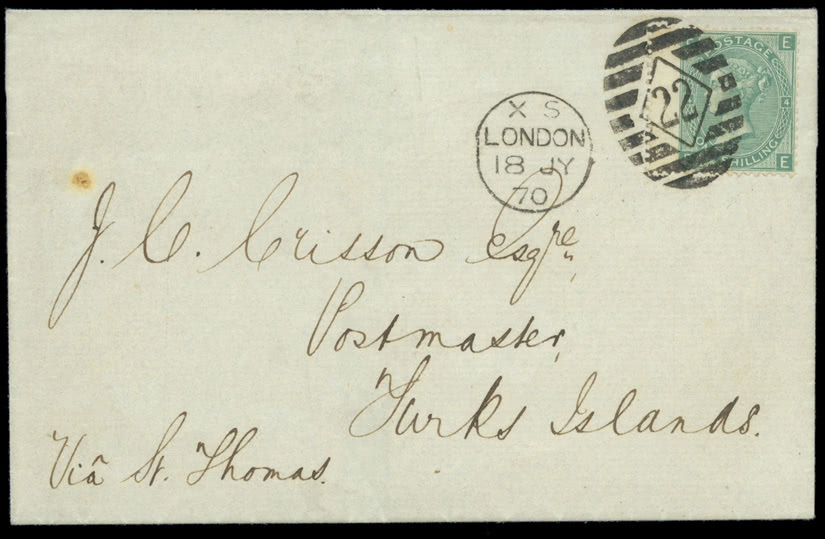 POSTAGE
E
4
22
SHILLING
E
X S
LONDON
18 JY
70
J. C. Crisson Esqre,
Postmaster,
Turks Islands.
Viâ St. Thomas.